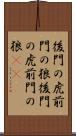 後門の虎前
門の狼後門
の虎前門の
狼